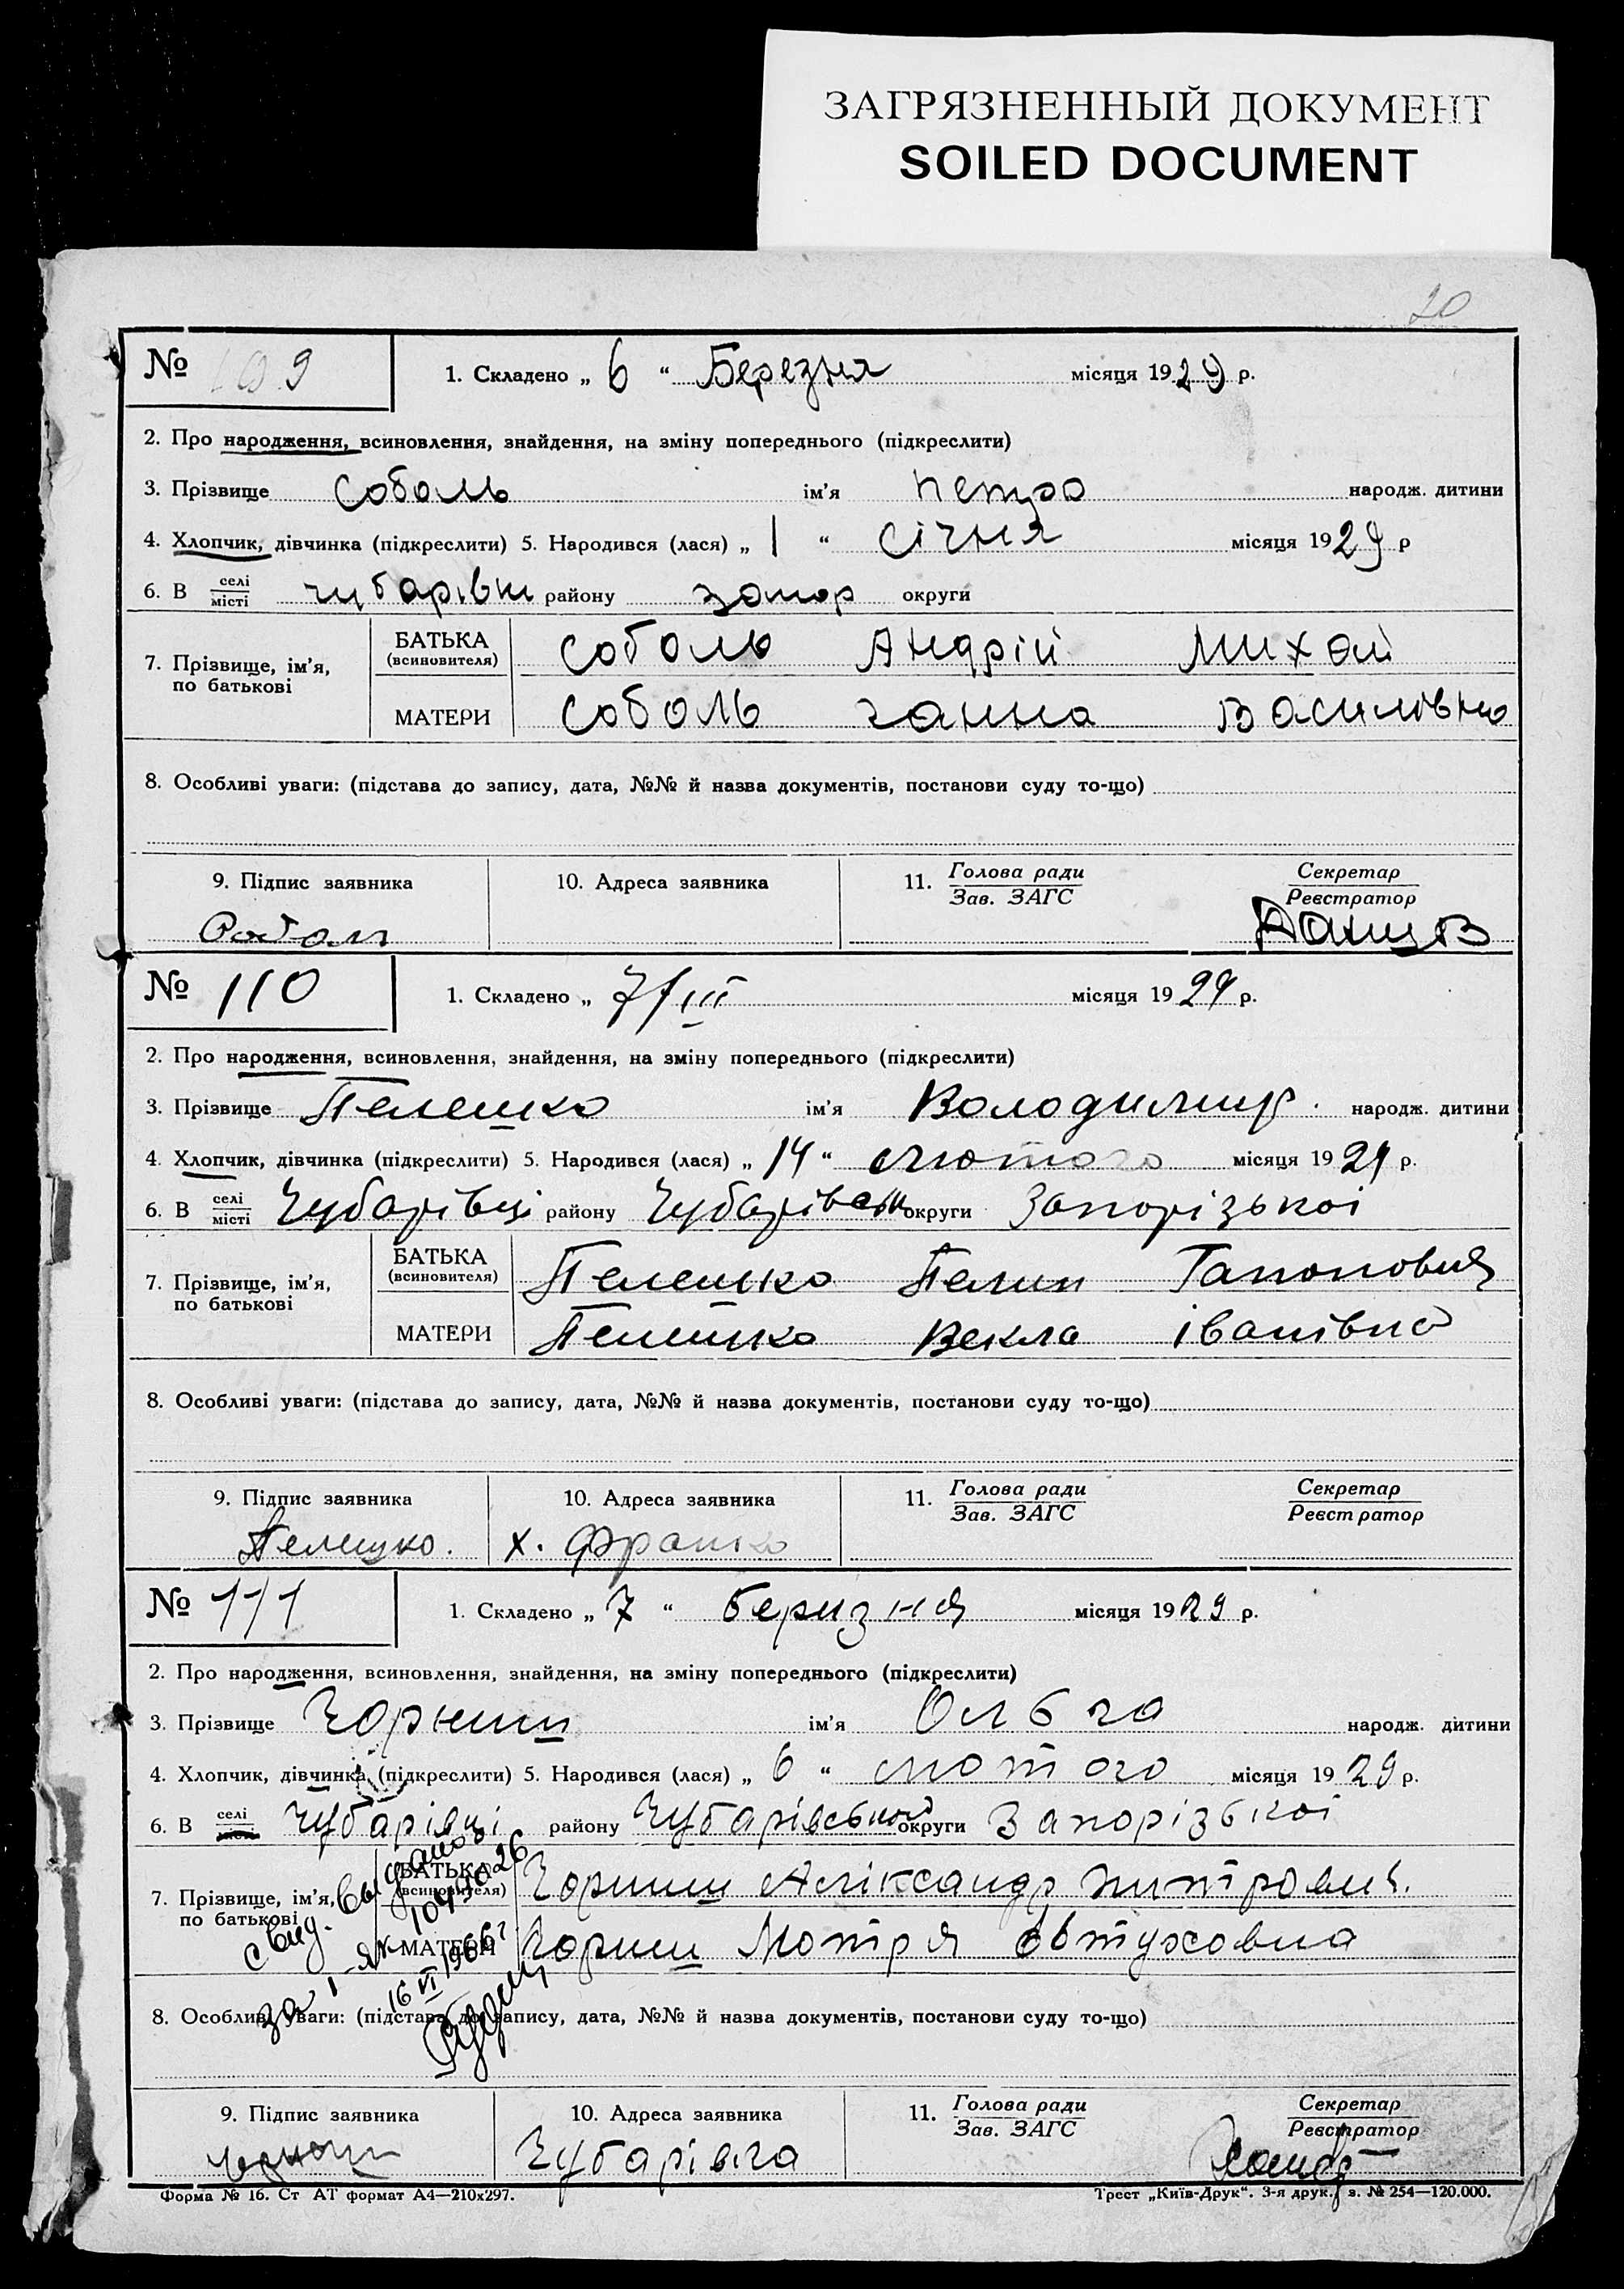 ЗАГРЯЗНЕННЫЙ ДОКУМЕНТ
SOILED DOCUMENT
20
№ 109 1. Складено „ 6 “ Березня місяця 1929 р.
2. Про народження, всиновлення, знайдення, на зміну попереднього (підкреслити)
3. Прізвище Соболь ім'я Петро народж. дитини
4. Хлопчик, дівчинка (підкреслити) 5. Народився (лася) „ 1 “ Січня місяця 1929 р
6. В селі/місті Чубарівки району Запор округи
7. Прізвище, ім'я, по батькові
БАТЬКА (всиновителя) Соболь Андрій Михай
МАТЕРИ Соболь Ганна Василівна
8. Особливі уваги: (підстава до запису, дата, №№ й назва документів, постанови суду то-що)
9. Підпис заявника 10. Адреса заявника 11. Голова ради/Зав. ЗАГС Секретар/Реєстратор
Соболь
№ 110 1. Складено „ 7/III місяця 1929 р.
2. Про народження, всиновлення, знайдення, на зміну попереднього (підкреслити)
3. Прізвище Пелешко ім'я Володимир народж. дитини
4. Хлопчик, дівчинка (підкреслити) 5. Народився (лася) „ 14 “ лютого місяця 1929 р.
6. В селі/місті Чубарівці району Чубарівськ округи Запорізької
7. Прізвище, ім'я, по батькові
БАТЬКА (всиновителя) Пелешко Пелип Гапонович
МАТЕРИ Пелешко Векла Іванівна
8. Особливі уваги: (підстава до запису, дата, №№ й назва документів, постанови суду то-що)
9. Підпис заявника 10. Адреса заявника 11. Голова ради/Зав. ЗАГС Секретар/Реєстратор
Пелешко. х. Франко
№ 111 1. Складено „ 7 “ беризня місяця 1929 р.
2. Про народження, всиновлення, знайдення, на зміну попереднього (підкреслити)
3. Прізвище Чорниш ім'я Ольга народж. дитини
4. Хлопчик, дівчинка (підкреслити) 5. Народився (лася) „ 6 “ лютого місяця 1929 р.
6. В селі/місті Чубарівці району Чубарівської округи Запорізької
7. Прізвище, ім'я, по батькові
БАТЬКА (всиновителя) Чорниш Аліксандр Митрович.
МАТЕРИ Чорниш Мотря Євтуховна
свид. выдано
за 1-ЯК 1049026
16 VI 1966 г.
8. Особливі уваги: (підстава до запису, дата, №№ й назва документів, постанови суду то-що)
9. Підпис заявника 10. Адреса заявника 11. Голова ради/Зав. ЗАГС Секретар/Реєстратор
Чубарівга
Форма № 16. Ст АТ формат А4—210х297. Трест „Київ-Друк“. 3-я друк. з. № 254—120.000.